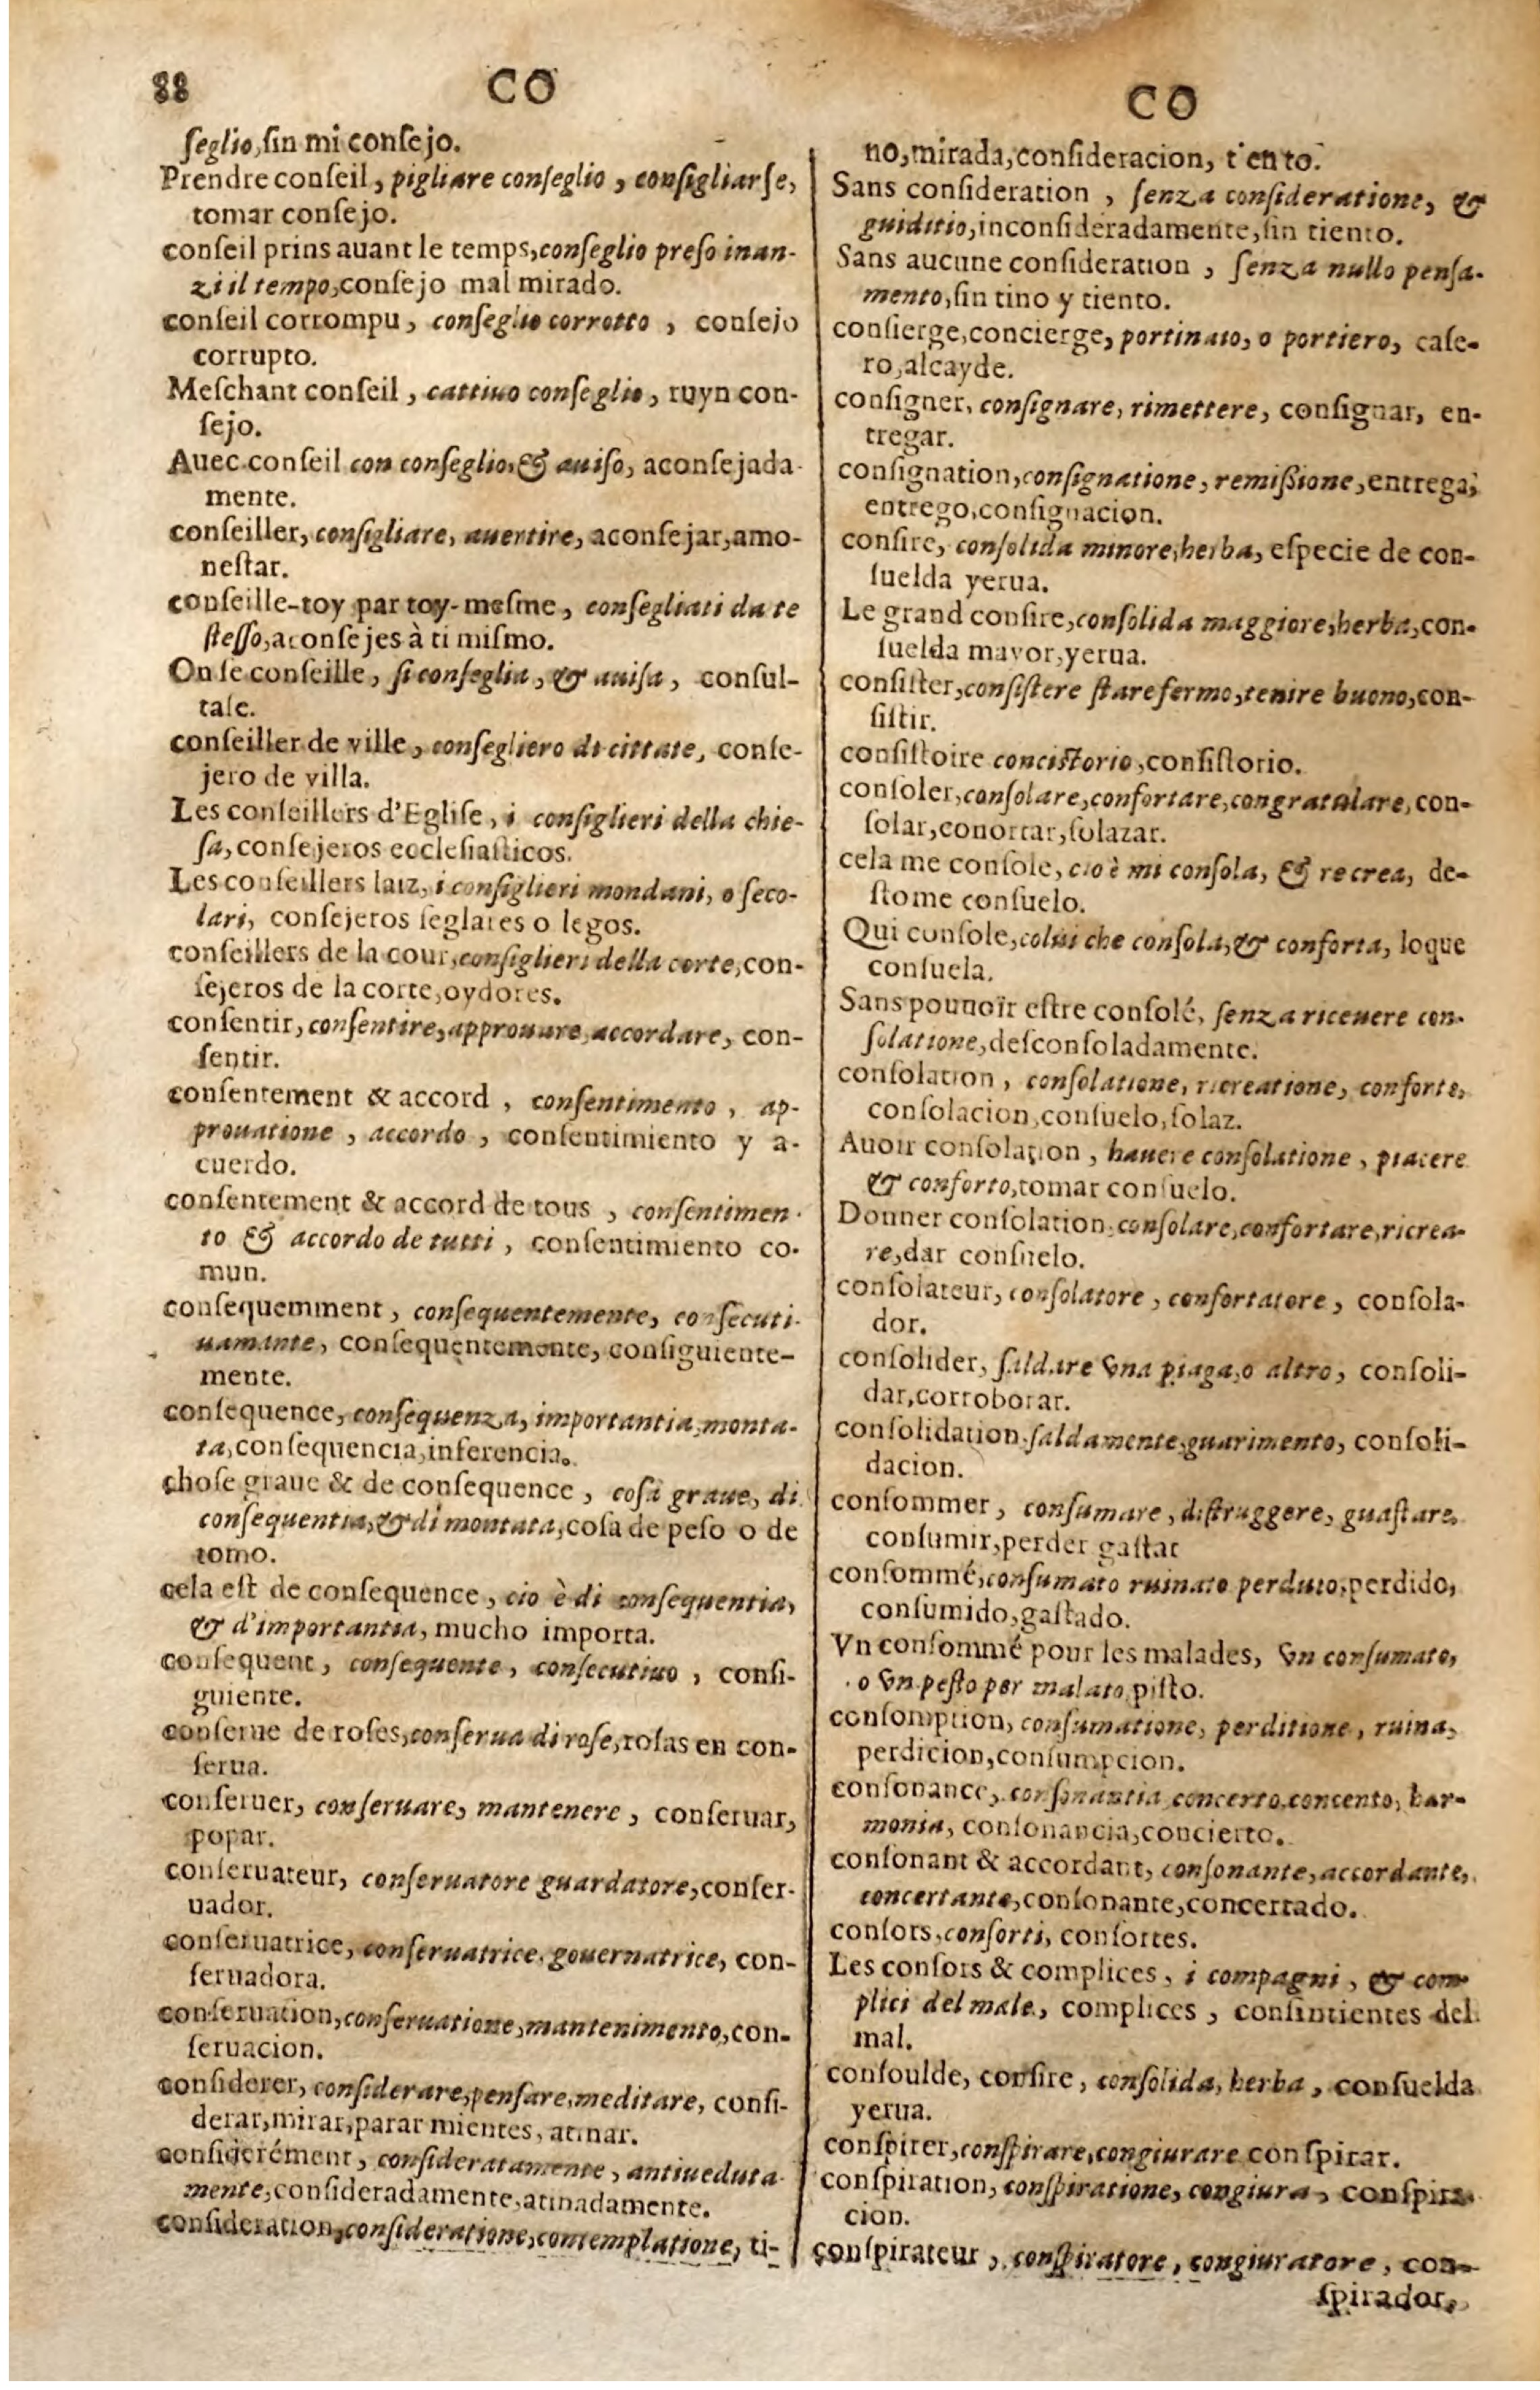 88
CO
ſeglio, ſin mi conſejo.
Prendre conſeil, pigliare conſeglio, conſigliarſe,
tomar conſejo.
conſeil prins auant le temps, conſeglio preſo inan-
zi il tempo, conſejo mal mirado.
conſeil corrompu, conſeglio corrotto, conſejo
corrupto.
Meſchant conſeil, cattiuo conſeglio, ruyn con-
ſejo.
Auec conſeil con conſeglio, & auiſo, aconſejada-
mente.
conſeiller, conſigliare, auertire, aconſejar, amo-
neſtar.
conſeille-toy par toy-meſme, conſegliati da te
ſteſſo, aconſejes à ti miſmo.
On ſe conſeille, ſi conſeglia, & auiſa, conſul-
taſe.
conſeiller de ville, conſegliero di cittate, conſe-
jero de villa.
Les conſeillers d'Egliſe, i conſiglieri della chie-
ſa, conſejeros eccleſiaſticos.
Les conſeillers laiz, i conſiglieri mondani, o ſeco-
lari, conſejeros ſeglares o legos.
conſeillers de la cour, conſiglieri della corte, con-
ſejeros de la corte, oydores.
conſentir, conſentire, approuare, accordare, con-
ſentir.
conſentement & accord, conſentimento, ap-
prouatione, accordo, conſentimiento y a-
cuerdo.
conſentement & accord de tous, conſentimen-
to & accordo de tutti, conſentimiento co-
mun.
conſequemment, conſequentemente, conſecuti-
uamante, conſequentemente, conſiguiente-
mente.
conſequence, conſequenza, importantia, monta-
ta, conſequencia, inferencia.
choſe graue & de conſequence, coſa graue, di
conſequentia, & di montata, coſa de peſo o de
tomo.
cela eſt de conſequence, cio è di conſequentia,
& d'importantia, mucho importa.
conſequent, conſequente, conſecutiuo, conſi-
guiente.
conſerue de roſes, conſerua di roſe, roſas en con-
ſerua.
conſeruer, conſeruare, mantenere, conſeruar,
popar.
conſeruateur, conſeruatore guardatore, conſer-
uador.
conſeruatrice, conſeruatrice, gouernatrice, con-
ſeruadora.
conſeruation, conſeruatione, mantenimento, con-
ſeruacion.
conſiderer, conſiderare, penſare, meditare, conſi-
derar, mirar, parar mientes, atinar.
conſiderément, conſideratamente, antiueduta-
mente, conſideradamente, atinadamente.
conſideration, conſideratione, contemplatione, ti-
CO
no, mirada, conſideracion, tento.
Sans conſideration, ſenza conſideratione, &
guiditio, inconſideradamente, ſin tiento.
Sans aucune conſideration, ſenza nullo penſa-
mento, ſin tino y tiento.
conſierge, concierge, portinaio, o portiero, caſe-
ro, alcayde.
conſigner, conſignare, rimettere, conſignar, en-
tregar.
conſignation, conſignatione, remiſsione, entrega,
entrego, conſignacion.
conſire, conſolida minore, herba, eſpecie de con-
ſuelda yerua.
Le grand conſire, conſolida maggiore, herba, con-
ſuelda mayor, yerua.
conſiſter, conſiſtere ſtare fermo, tenire buono, con-
ſiſtir.
conſiſtoire conciſtorio, conſiſtorio.
conſoler, conſolare, confortare, congratulare, con-
ſolar, conortar, ſolazar.
cela me conſole, cio è mi conſola, & recrea, de-
ſtome conſuelo.
Qui conſole, colui che conſola, & conforta, loque
conſuela.
Sans pouuoir eſtre conſolé, ſenza riceuere con-
ſolatione, deſconſoladamente.
conſolation, conſolatione, ricreatione, conforte,
conſolacion, conſuelo, ſolaz.
Auoir conſolation, hauere conſolatione, piacere
& conforto, tomar conſuelo.
Donner conſolation, conſolare, confortare, ricrea-
re, dar conſuelo.
conſolateur, conſolatore, confortatore, conſola-
dor.
conſolider, ſaldare vna piaga, o altro, conſoli-
dar, corroborar.
conſolidation, ſaldamente, guarimento, conſoli-
dacion.
conſommer, conſumare, diſtruggere, guaſtare,
conſumir, perder gaſtar
conſommé, conſumato ruinato perduto, perdido,
conſumido, gaſtado.
Vn conſommé pour les malades, vn conſumato,
o vn peſto per malato, piſto.
conſomption, conſumatione, perditione, ruina,
perdicion, conſumpcion.
conſonance, conſonantia, concerto, concento, har-
monia, conſonancia, concierto.
conſonant & accordant, conſonante, accordante,
concertante, conſonante, concertado.
conſors, conſorti, conſortes.
Les conſors & complices, i compagni, & com-
plici del male, complices, conſintientes del
mal.
conſoulde, conſire, conſolida, herba, conſuelda
yerua.
conſpirer, conſpirare, congiurare conſpirar.
conſpiration, conſpiratione, congiura, conſpira-
cion.
conſpirateur, conſpiratore, congiuratore, con-
ſpirador,